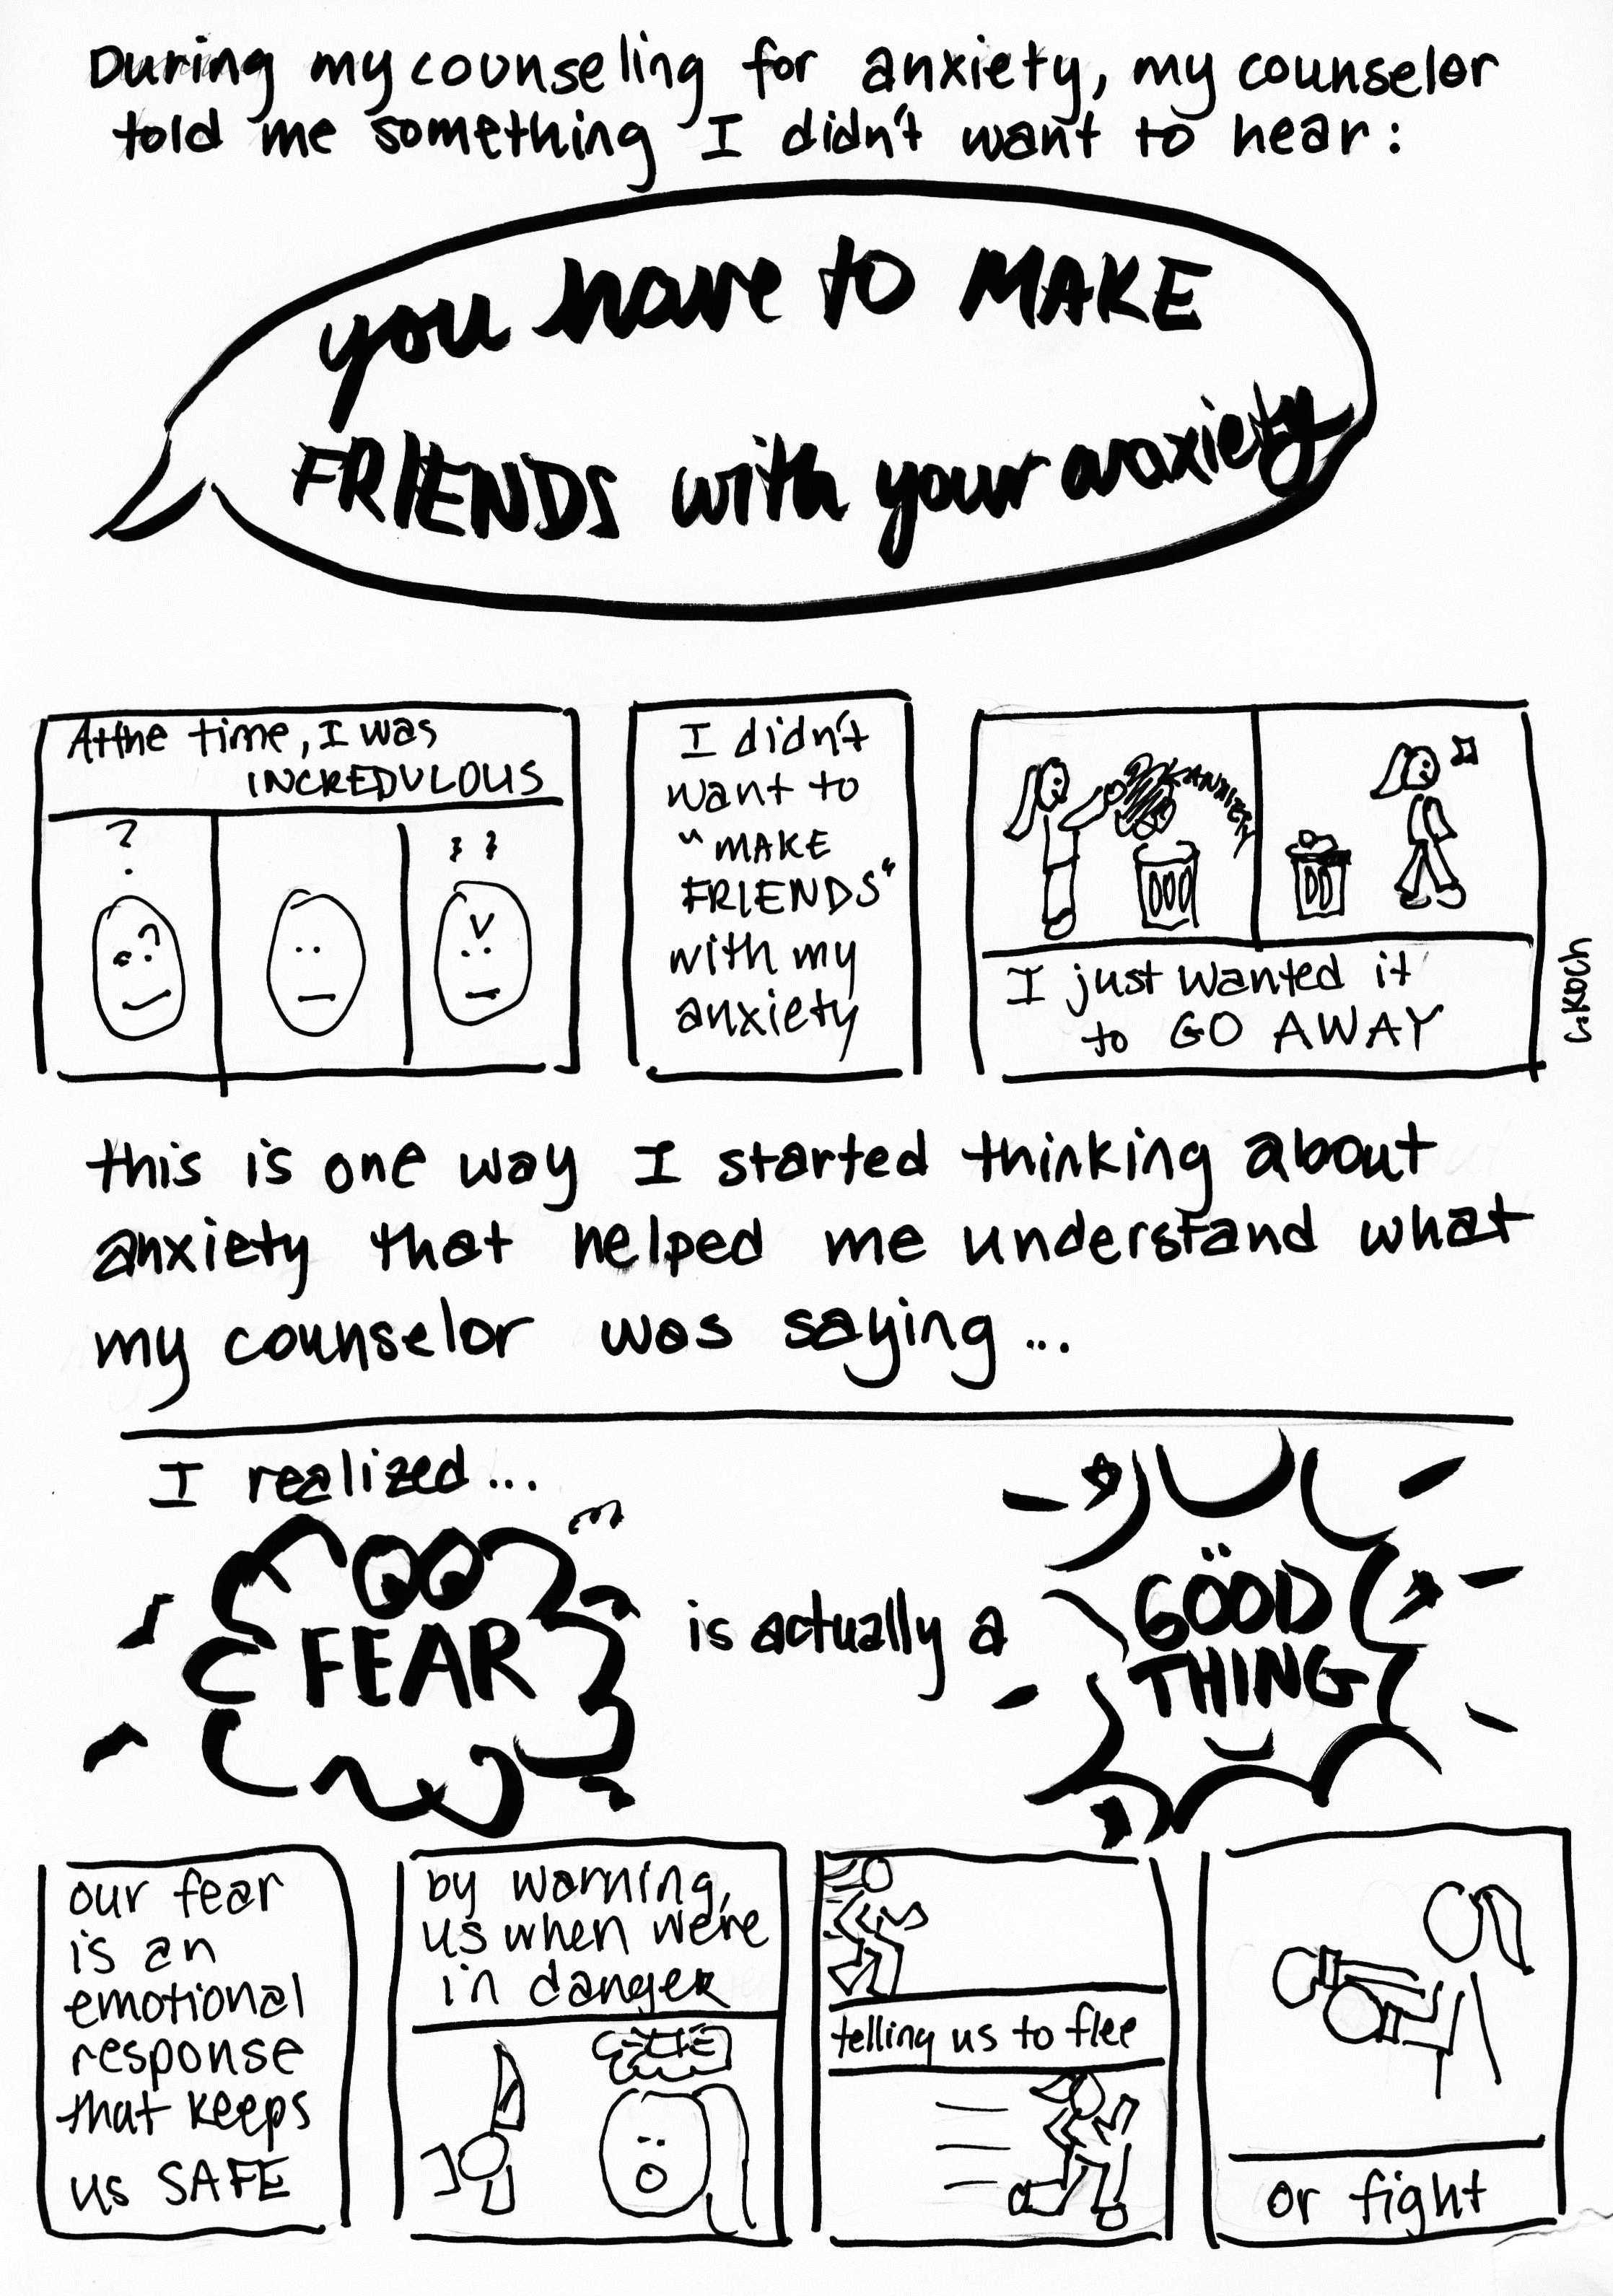 During my counseling for anxiety, my counselor
told me something I didn't want to hear:
you have to MAKE
FRIENDS with your anxiety
At the time, I was
INCREDULOUS
?
I didn't
want to
"MAKE
FRIENDS"
with my
anxiety
ANXIETY
I just wanted it
to GO AWAY
C. Koch
this is one way I started thinking about
anxiety that helped me understand what
my counselor was saying...
I realized...
FEAR
is actually a
GOOD
THING
our fear
is an
emotional
response
that keeps
us SAFE
by warning
us when we're
in danger
telling us to flee
or fight